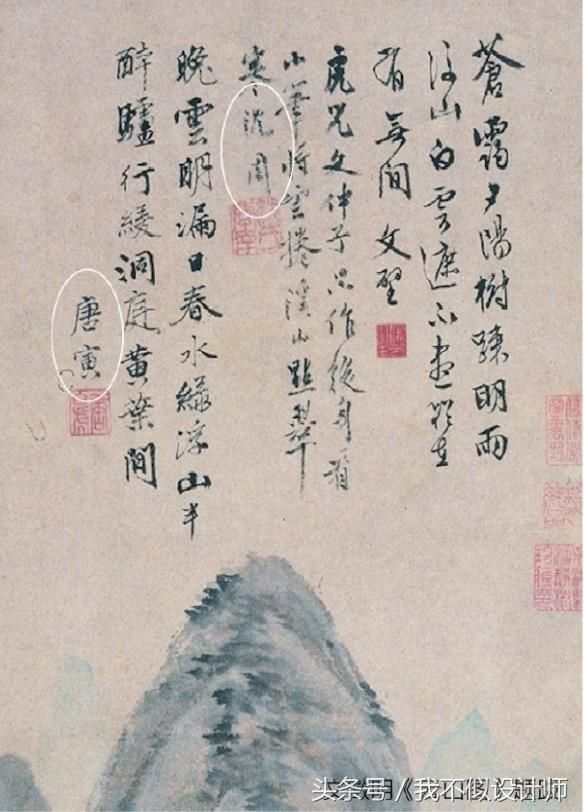 蒼靄夕陽樹踈明雨
後山白雲遮不盡在
有無間 文璧
虎兒文仲子只作後身看
小筆將雲捲溪山點翠
寒 沈周
晚雲明漏日春水綠浮山半
醉驢行緩洞庭黄葉間
唐寅
头条号/我不似设计师